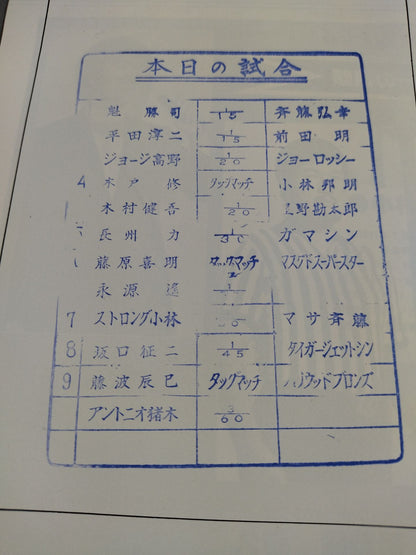 本日の試合
魁 勝司 1/15 斉藤弘幸
平田淳二 1/15 前田 明
ジョージ高野 1/20 ジョーロッシー
4 木戸 修 タッグマッチ 小林邦明
木村健吾 1/20 星野勘太郎
長州 力 1/30 ガマシン
藤原喜明 タッグマッチ マスクドスーパースター
永源 遙
7 ストロング小林 マサ斉藤
8 坂口征二 1/45 タイガージェットシン
9 藤波辰巳 タッグマッチ ハリウッドブロンズ
アントニオ猪木 3/60